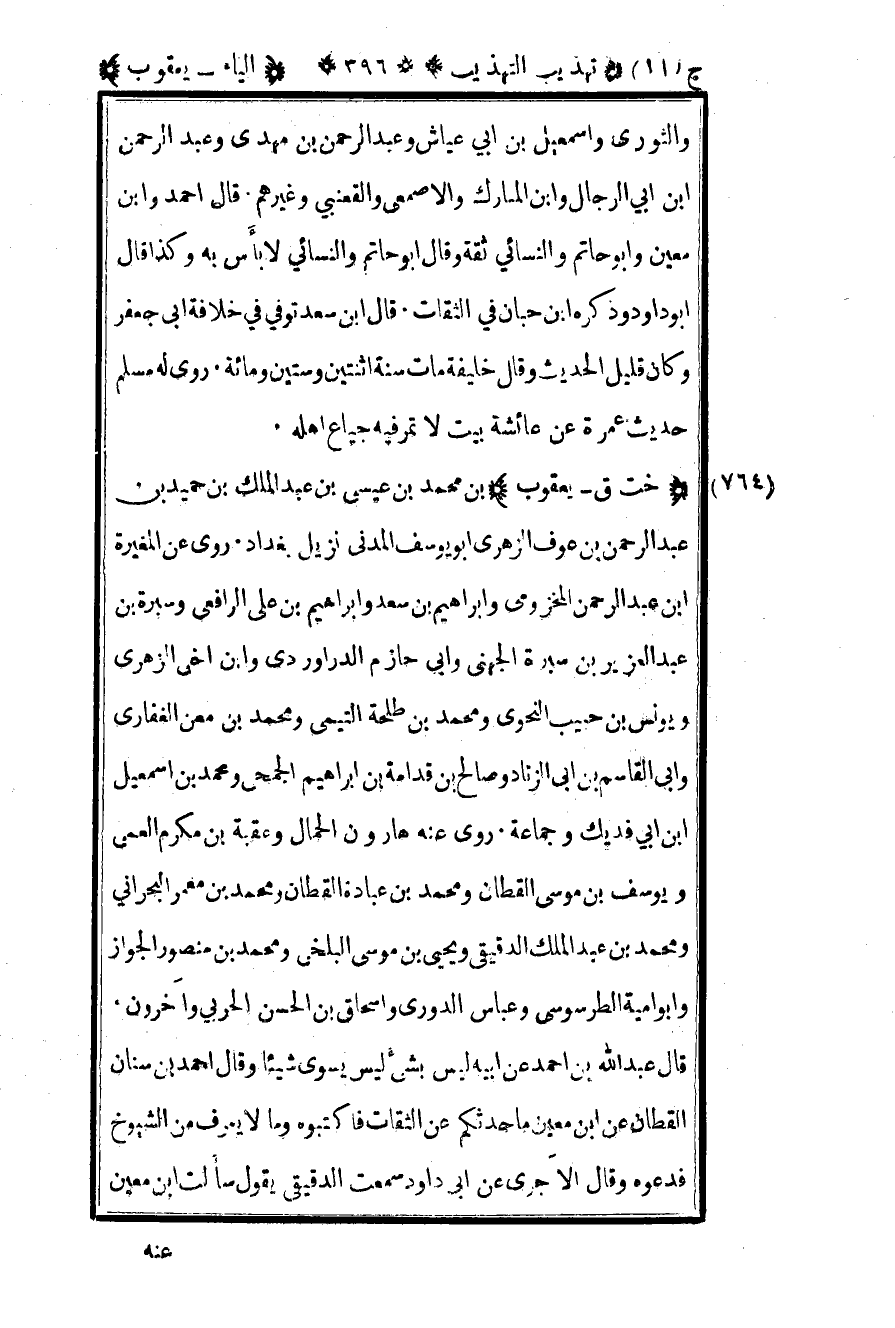 ج (١١) ﴿ تهذيب التهذيب ﴾ ☆ ٣٩٦ ﴿ ﴾ ﴿ الياء ـ يعقوب ﴾
والثورى واسمعيل بن ابي عياش وعبدالرحمن بن مهدى وعبد الرحمن
ابن ابي الرجال وابن المبارك والاصمعى والقعنبي وغيرهم · قال احمد وابن
معين وابوحاتم والنسائي ثقة وقال ابوحاتم والنسائي لا بأس به وكذا قال
ابوداود وذكره ابن حبان في الثقات · قال ابن سعد توفي في خلافة ابى جعفر
وكان قليل الحديث وقال خليفة مات سنة اثنتين وستين ومائة · روى له مسلم
حديث عمرة عن عائشة بيت لا تمر فيه جياع اهله ·
(٧٦٤) ﴿ خت ق ـ يعقوب ﴾ بن محمد بن عيسى بن عبد الملك بن حميد بن
عبدالرحمن بن عوف الزهرى ابو يوسف المدنى نزيل بغداد · روى عن المغيرة
ابن عبد الرحمن المخزومى وابراهيم بن سعد وابراهيم بن على الرافعى وسبرة بن
عبد العزيز بن سبرة الجهنى وابي حازم الدراوردى وابن اخى الزهرى
ويونس بن حبيب النحوى ومحمد بن طلحة التيمى ومحمد بن معن الغفارى
وابى القاسم بن ابى الزناد وصالح بن قدامة بن ابراهيم الجمحى ومحمد بن اسمعيل
ابن ابي فديك وجماعة · روى عنه هارون الحمال وعقبة بن مكرم العمى
ويوسف بن موسى القطان ومحمد بن عبادة القطان ومحمد بن معمر البحراني
ومحمد بن عبد الملك الدقيقى ويحيى بن موسى البلخى ومحمد بن منصور الجواز
وابوامية الطرسوسى وعباس الدورى واسحاق بن الحسن الحربي وآخرون ·
قال عبدالله بن احمد عن ابيه ليس بشئ ليس يسوى شيئا وقال احمد بن سنان
القطان عن ابن معين ماحدثكم عن الثقات فاكتبوه وما لا يعرف من الشيوخ
فدعوه وقال الآجرى عن ابى داود سمعت الدقيقى يقول سألت ابن معين
عنه